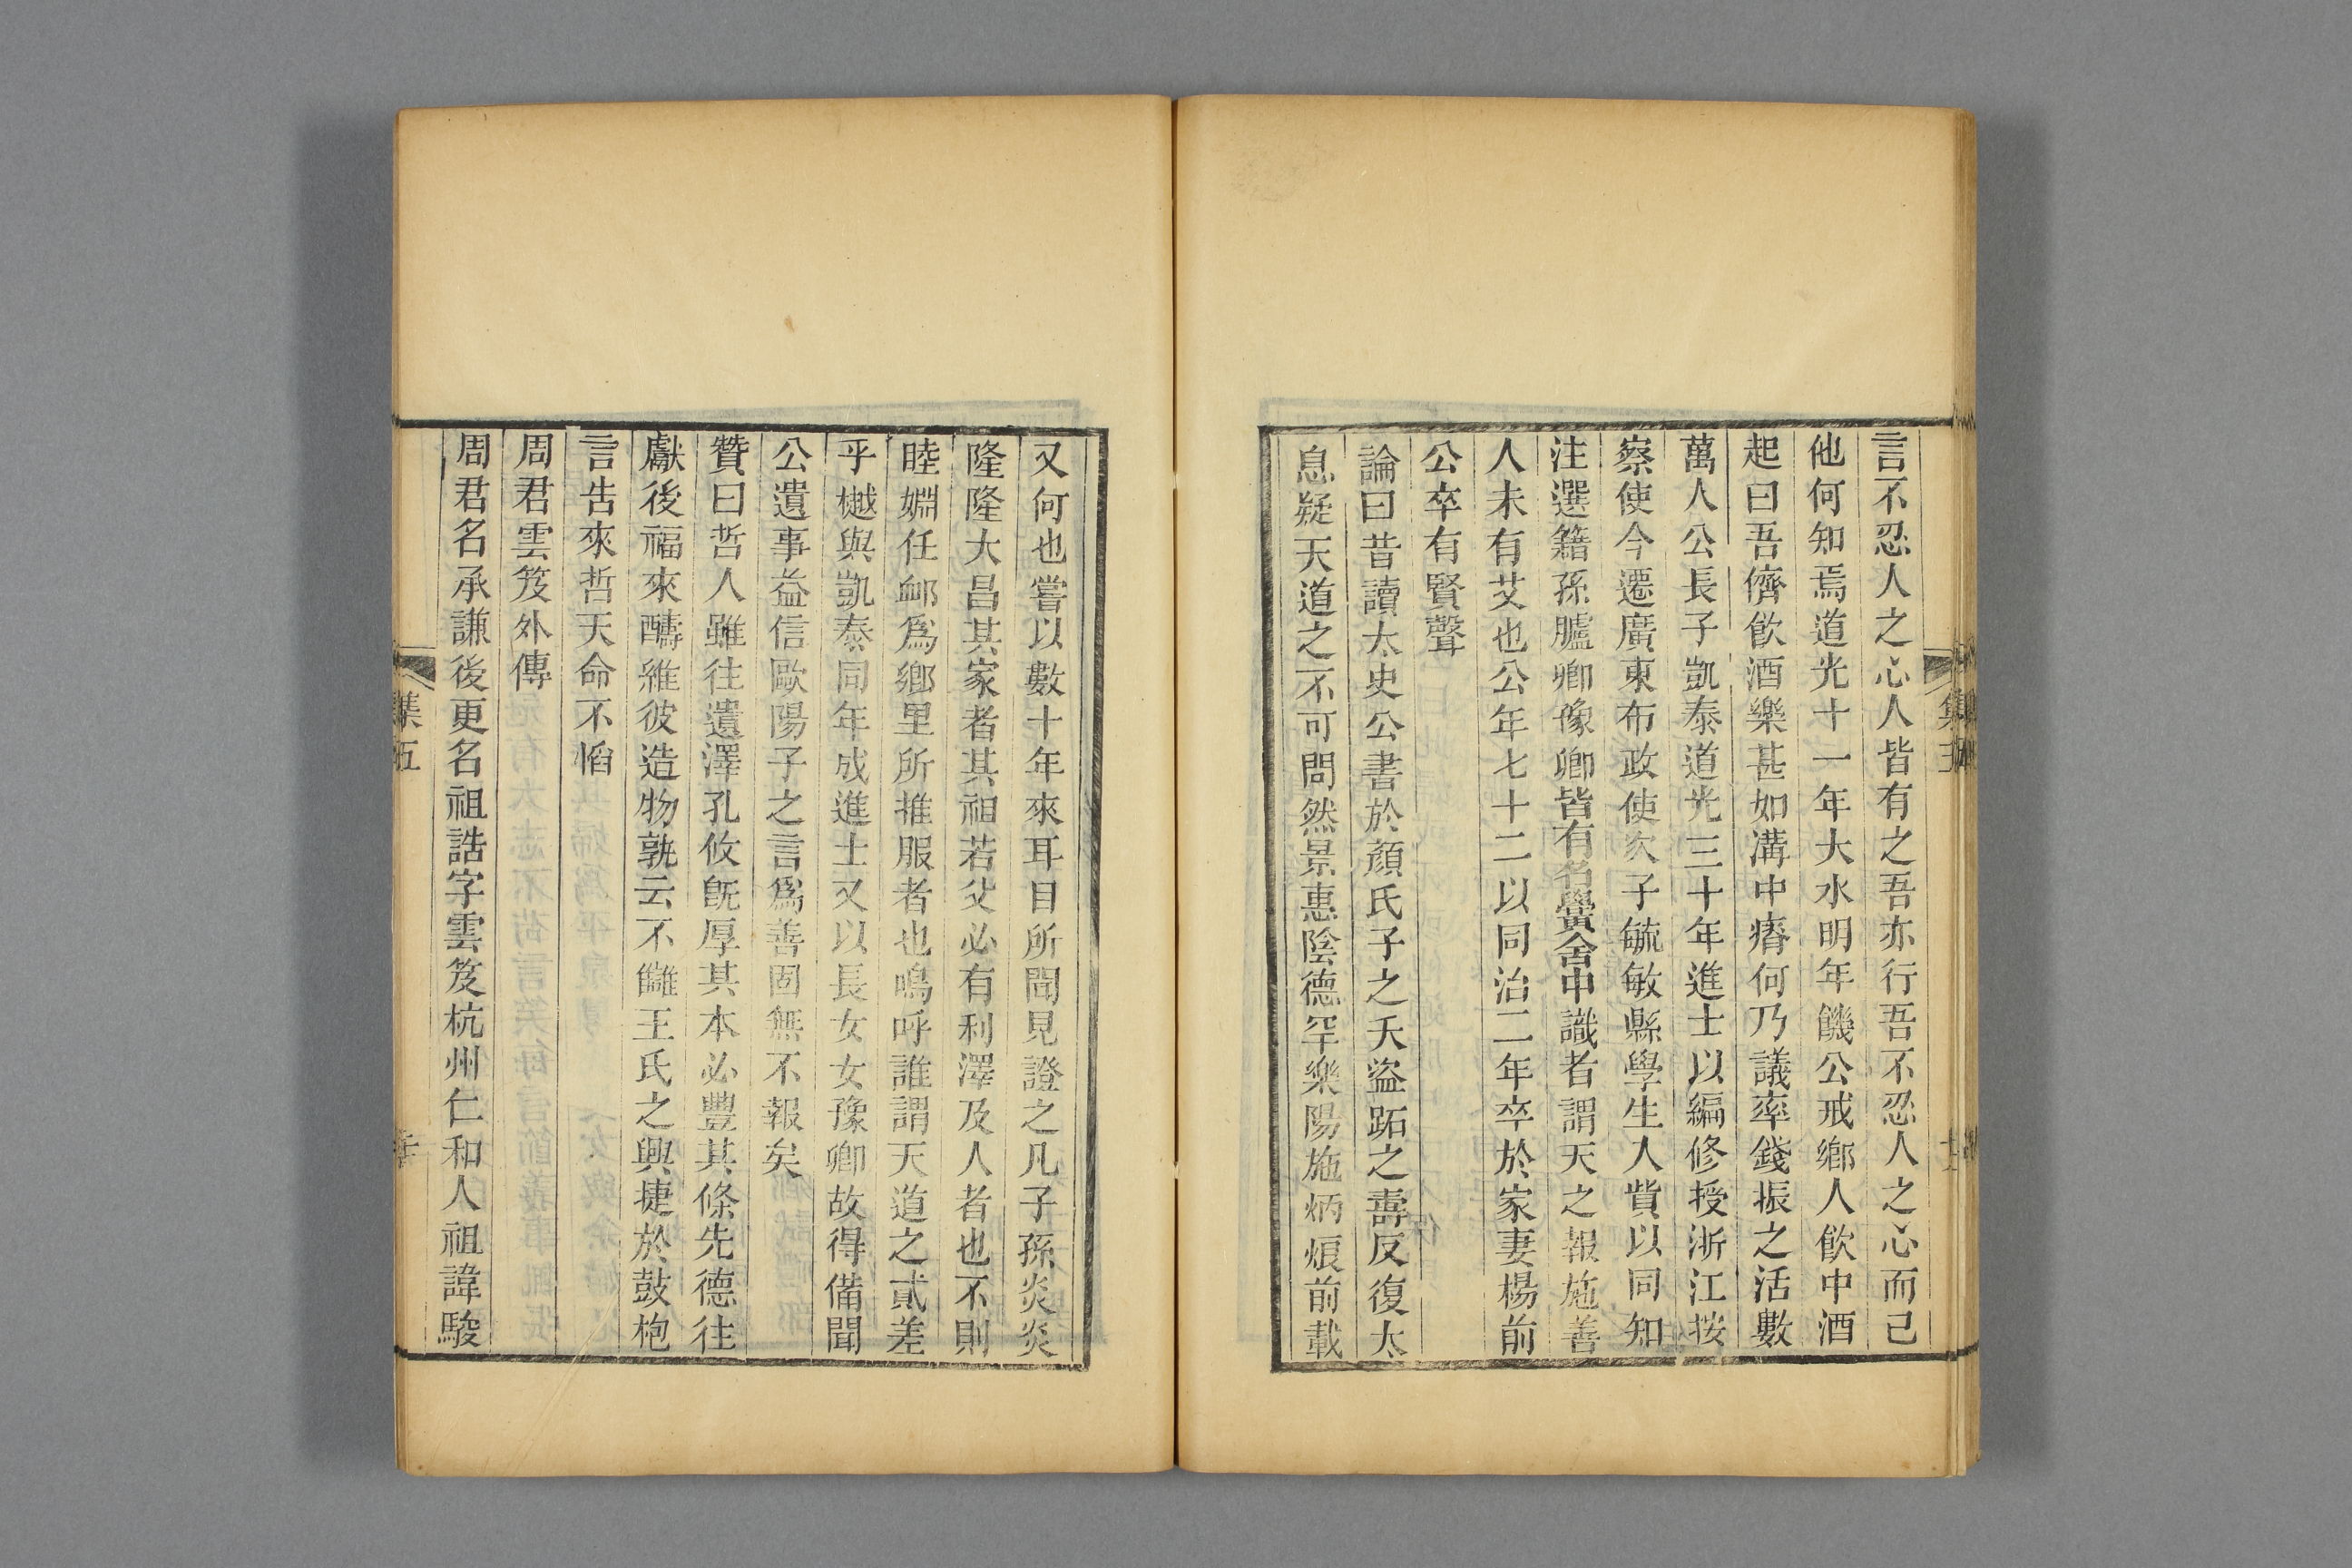 言不忍人之心人皆有之吾亦行吾不忍人之心而已
他何知焉道光十一年大水明年饑公戒鄉人飲中酒
起曰吾儕飲酒樂甚如溝中瘠何乃議率錢振之活數
萬人公長子凱泰道光三十年進士以編修授浙江按
察使今遷廣東布政使次子毓敏縣學生人貲以同知
注選籍孫臚卿豫卿皆有名黌舍中識者謂天之報施善
人未有艾也公年七十二以同治二年卒於家妻楊前
公卒有賢聲
論曰昔讀太史公書於顏氏子之夭盜跖之壽反復太
息疑天道之不可問然景惠陰德罕樂陽施炳烺前載
又何也嘗以數十年來耳目所聞見證之凡子孫炎炎
隆隆大昌其家者其祖若父必有利澤及人者也不則
睦婣任卹爲鄉里所推服者也嗚呼誰謂天道之貳差
乎樾與凱泰同年成進士又以長女女豫卿故得備聞
公遺事益信歐陽子之言爲善固無不報矣
贊曰哲人雖往遺澤孔攸旣厚其本必豐其條先德往
獻後福來醻維彼造物孰云不讎王氏之興捷於鼓枹
言告來哲天命不慆
周君雲笈外傳
周君名承謙後更名祖誥字雲笈杭州仁和人祖諱駿
集五